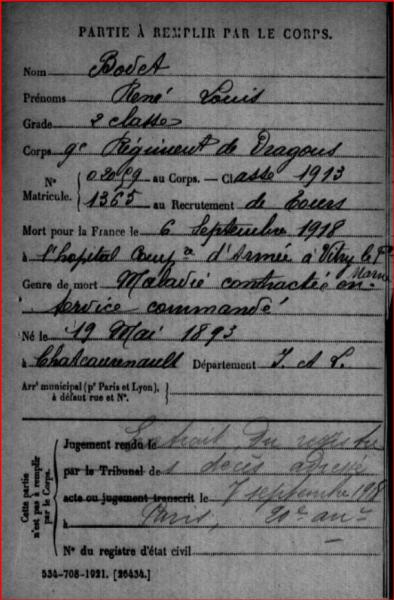 PARTIE À REMPLIR PAR LE CORPS.
Nom Bodet
Prénoms René Louis
Grade 2 classe
Corps 9e Régiment de Dragons
N° Matricule. 02059 au Corps. — Classe 1913
1365 au Recrutement de Tours
Mort pour la France le 6 Septembre 1918
à l'hopital d'Armée à Vitry le Fois Marne
Genre de mort Maladie contractée en
service commandé
Né le 19 Mai 1893
à Chateaurenault Département I. A L.
Arrt municipal (pr Paris et Lyon), à défaut rue et N°.
Cette partie n'est pas à remplir par le Corps.
Jugement rendu le Extrait du registre
par le Tribunal de s décès adressé
acte ou jugement transcrit le 7 septembre 1918
à Paris, 20e arrt
N° du registre d'état civil
534-708-1921. [26434.]